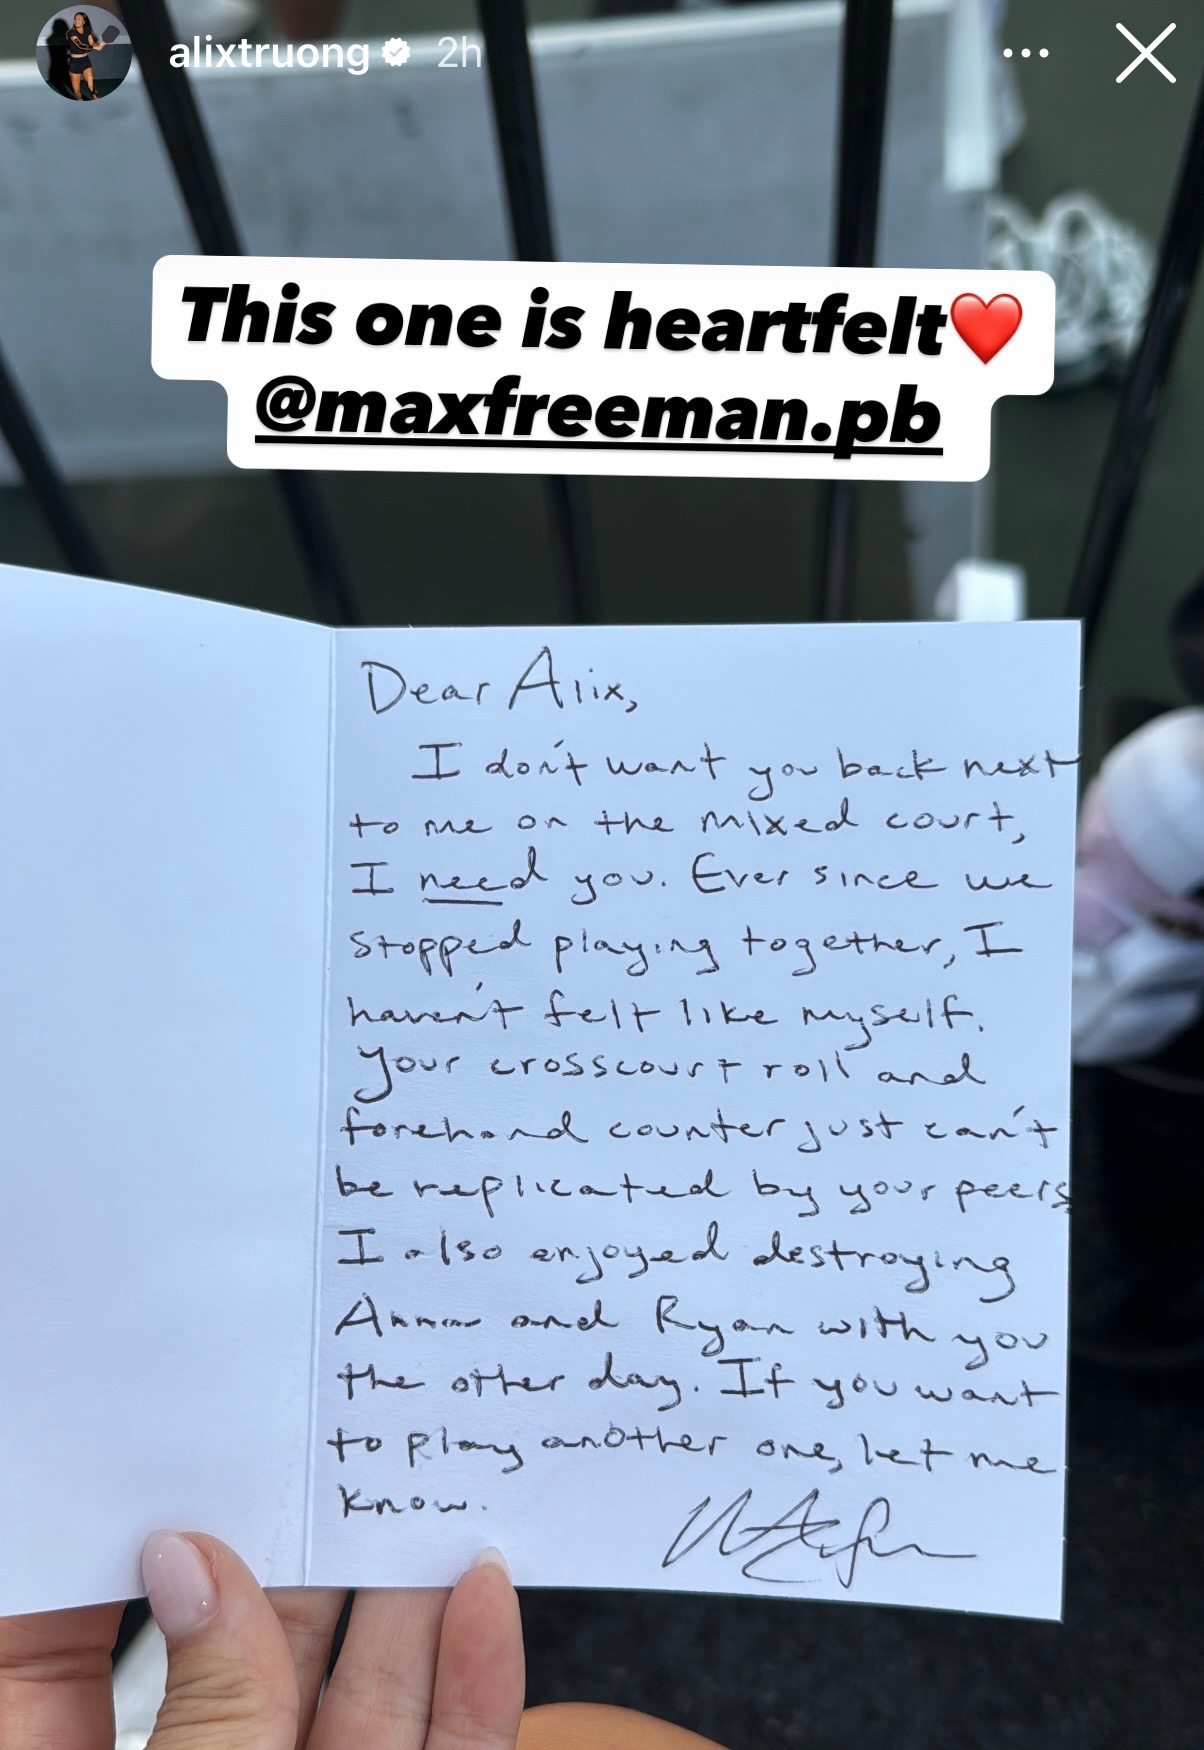 alixtruong 2h
This one is heartfelt❤️
@maxfreeman.pb
Dear Alix,
I don't want you back next
to me on the mixed court,
I need you. Ever since we
stopped playing together, I
haven't felt like myself.
Your crosscourt roll and
forehand counter just can't
be replicated by your peers.
I also enjoyed destroying
Anna and Ryan with you
the other day. If you want
to play another one, let me
know.